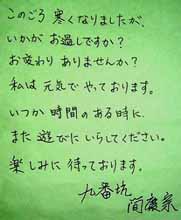 このごろ 寒くなりましたが、
いかが お過しですか?
お変わり ありませんか?
私は 元気で やっております。
いつか 時間の ある時に、
また 遊びに いらしてください。
楽しみに 待っております。
九番坑
間